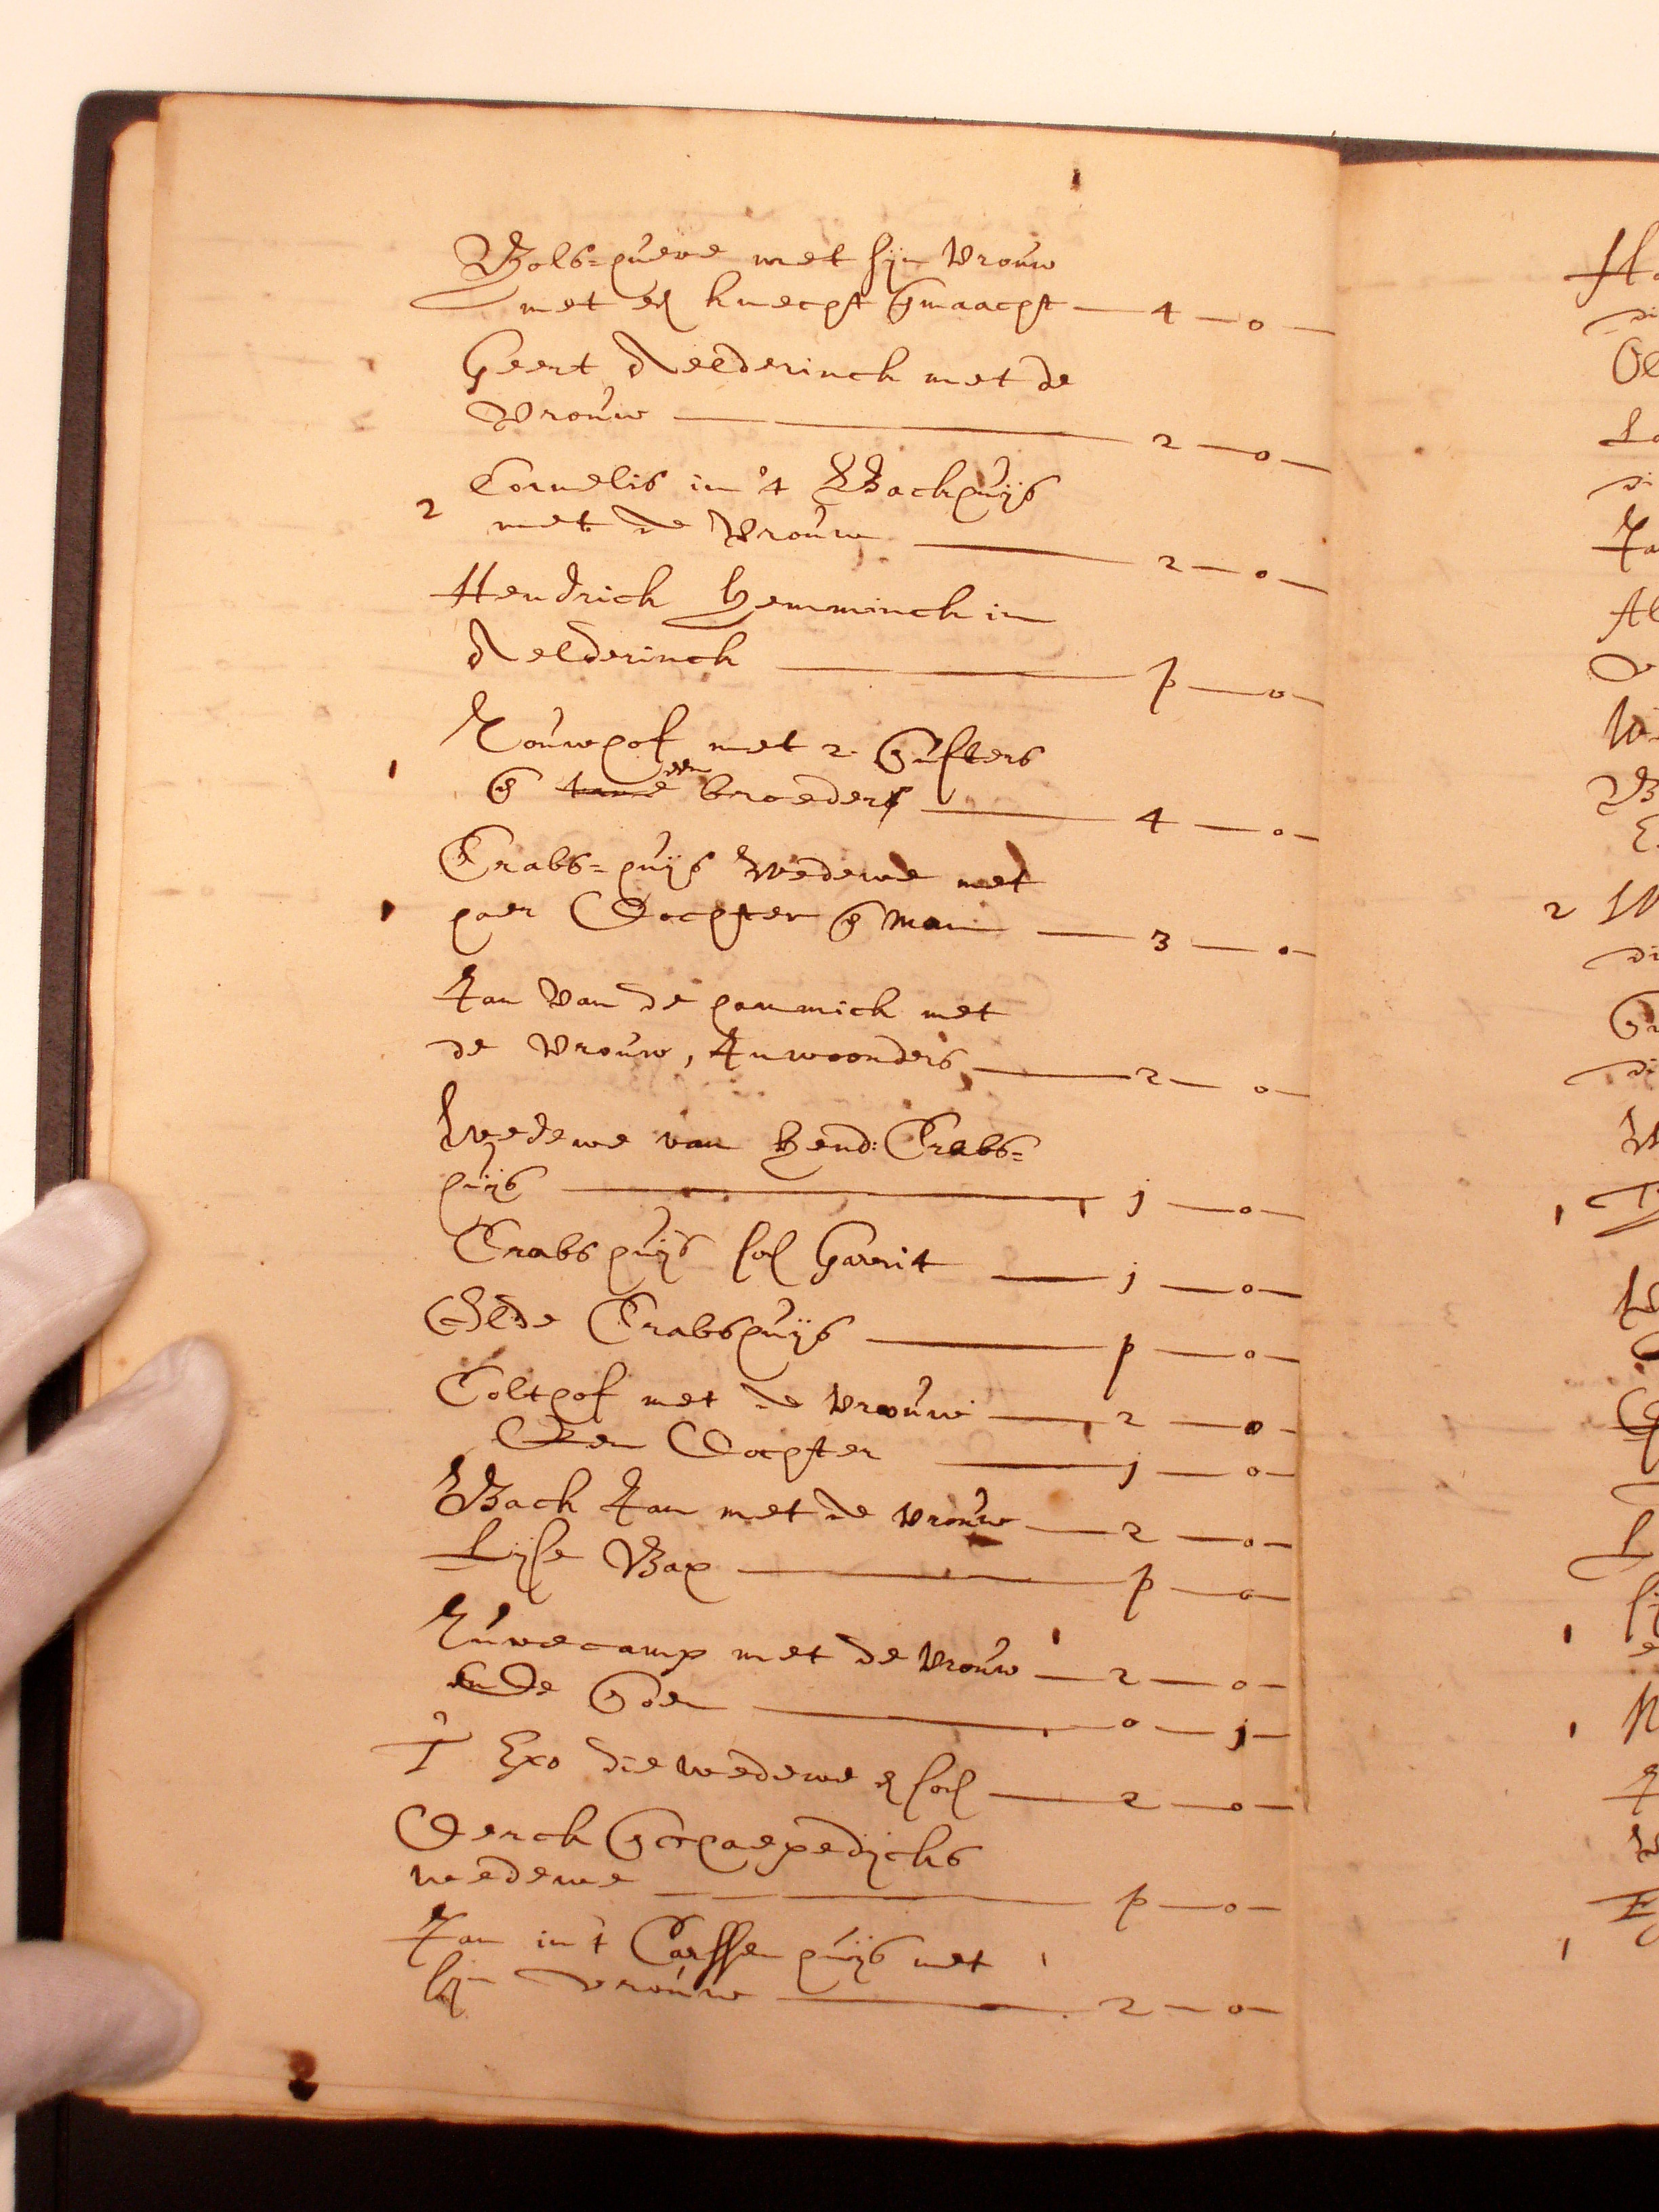 Bols=huere met sijn vrouw
met eñ knecht & maacht — 4 — 0 —
Geert Relderinck met de
vrouw — 2 — 0 —
Cornelis in 't Backhuijs
2 met de vrouw — 2 — 0 —
Hendrick Hemminck in
Relderinck — p — 0 —
Rouwhof met 2 susters
& twee een broeders — 4 — 0 —
Crabs=huijs wedewe met
haer dochter & man — 3 — 0 —
Jan van de hammick met
de vrouw, Inwoonders — 2 — 0 —
Wedewe van Hend: Crabs=
huijs — j — 0 —
Crabshuijs soñ Garrit — j — 0 —
Olde Crabshuijs — p — 0 —
Colthof met de vrouw — 2 — 0 —
Een dochter — j — 0 —
Back Jan met de vrouw — 2 — 0 —
Lijse Bax — p — 0 —
Ruwecamp met de vrouw — 2 — 0 —
ende soen — 0 — j —
T' Exo die wedewe & soñ — 2 — 0 —
Derck Schaepedijcks
wedewe — p — 0 —
Jan in 't Carssenhuijs met
sijn vrouw — 2 — 0 —